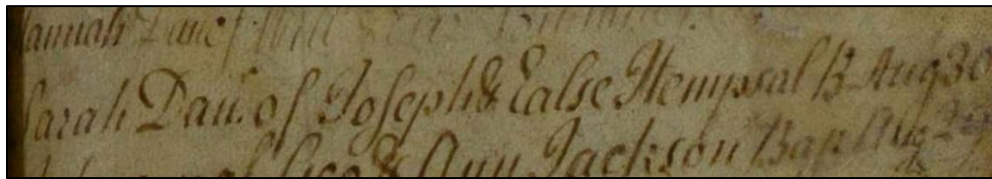 Hannah Dau: of Will
Sarah Dau: of Joseph & Ealse Hempsal B Aug 30
of Geo & Ann Jackson Bap Aug 29